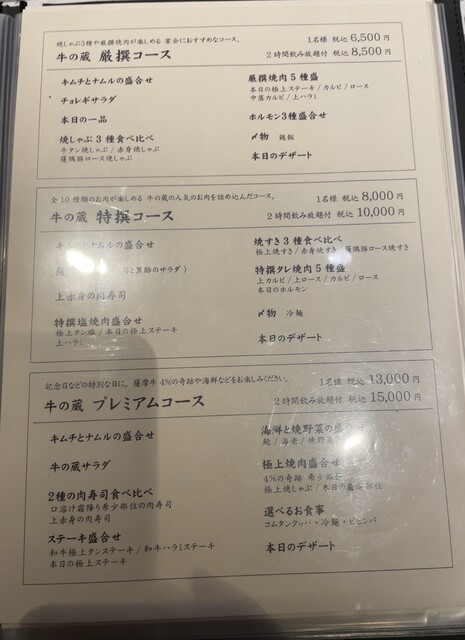 焼しゃぶ3種や厳撰焼肉が楽しめる 宴会におすすめなコース。
1名様 税込 6,500円
牛の蔵 厳撰コース
2時間飲み放題付 税込 8,500円
キムチとナムルの盛合せ
チョレギサラダ
本日の一品
焼しゃぶ 3 種食べ比べ
牛タン焼しゃぶ / 赤身焼しゃぶ
薩隅豚ロース焼しゃぶ
厳撰焼肉 5 種盛
本日の極上ステーキ / カルビ / ロース
中落カルビ / 上ハラミ
ホルモン3種盛合せ
〆物 鶏飯
本日のデザート
全 10 種類のお肉が楽しめる 牛の蔵の人気のお肉を詰め込んだコース。
1名様 税込 8,000円
牛の蔵 特撰コース
2時間飲み放題付 税込 10,000円
キムチとナムルの盛合せ
と黒酢のサラダ)
上赤身の肉寿司
特撰塩焼肉盛合せ
極上タン塩 / 本日の極上ステーキ
上ハラミ
焼すき 3 種食べ比べ
極上焼すき / 赤身焼すき / 薩隅豚ロース焼すき
特撰タレ焼肉 5 種盛
上カルビ / 上ロース / カルビ / ロース
本日のホルモン
〆物 冷麺
本日のデザート
記念日などの特別な日に、薩摩牛 4%の奇跡や海鮮などをお楽しみください。
1名様 税込 13,000円
牛の蔵 プレミアムコース
2時間飲み放題付 税込 15,000円
キムチとナムルの盛合せ
牛の蔵サラダ
2種の肉寿司食べ比べ
口溶け霜降り希少部位の肉寿司
上赤身の肉寿司
ステーキ盛合せ
和牛極上タンステーキ / 和牛ハラミステーキ
本日の極上ステーキ
海鮮と焼野菜の盛
鮑 / 海老 / 焼野菜
極上焼肉盛合せ
4%の奇跡 希少部位
極上焼しゃぶ / 本日の厳選部位
選べるお食事
コムタンクッパ・冷麺・ビビンバ
本日のデザート